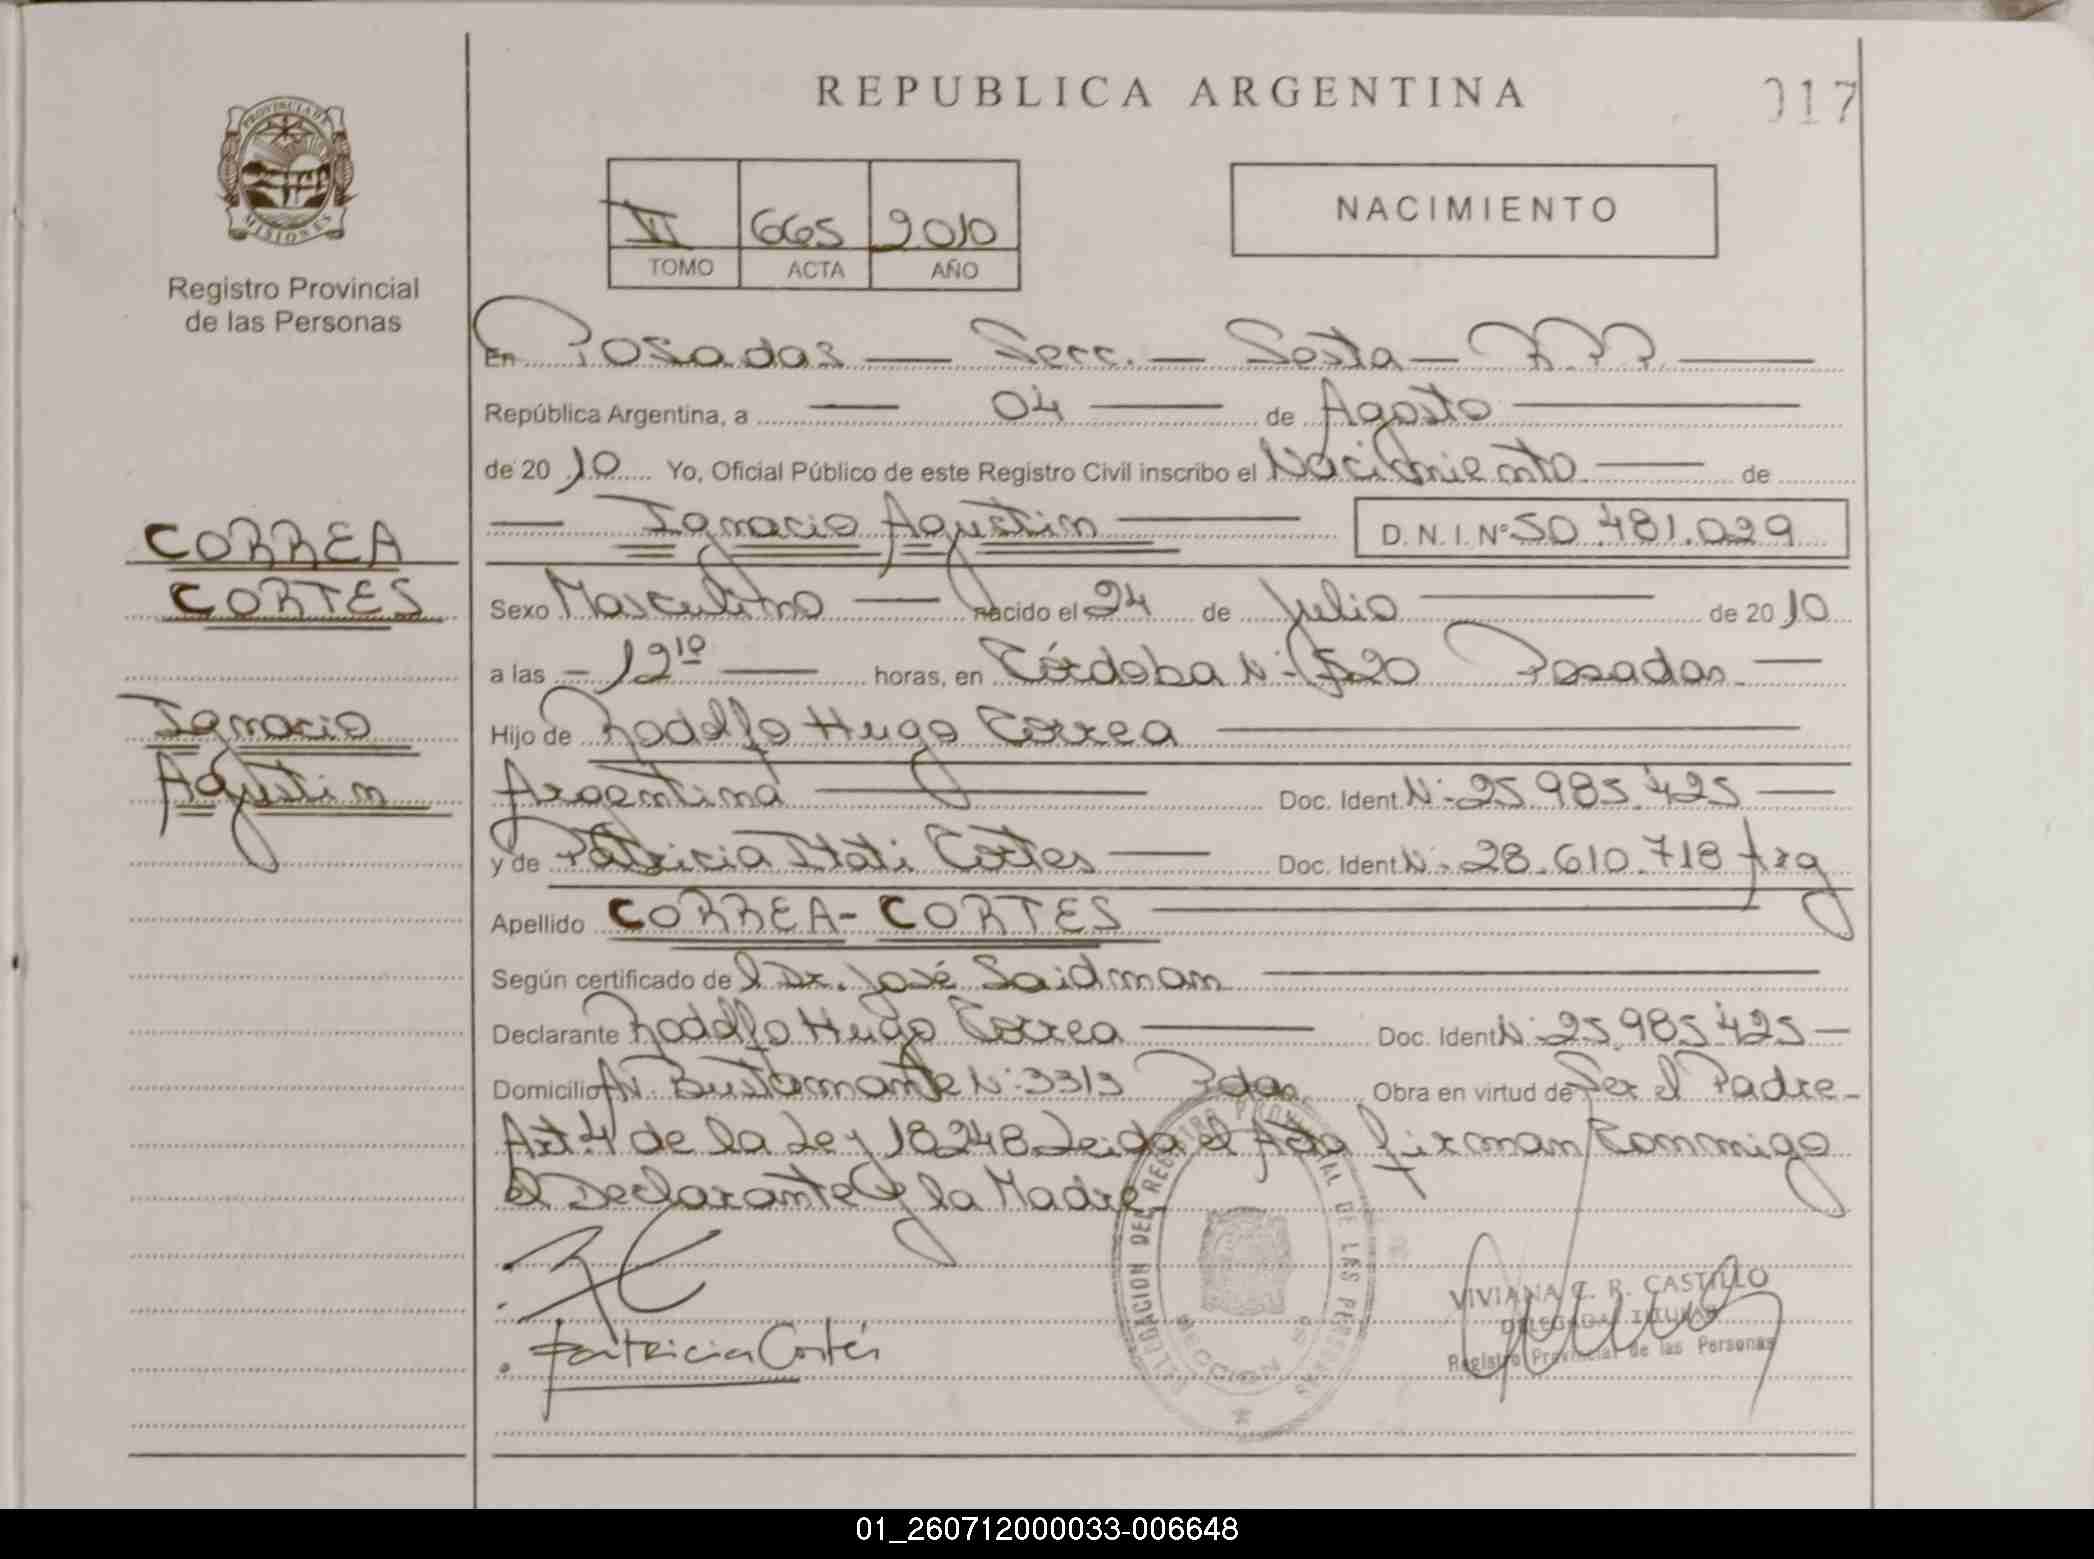 REPUBLICA ARGENTINA
017
PROVINCIA DE
MISIONES
Registro Provincial
de las Personas
VI 665 2010
TOMO ACTA AÑO
NACIMIENTO
En Posadas — Secc. — Sexta — R.P.P. —
República Argentina, a — 04 — de Agosto —
de 20 10 Yo, Oficial Público de este Registro Civil inscribo el Nacimiento — de
— Ignacio Agustin — D.N.I. Nº 50.481.029
CORREA
CORTES
Ignacio
Agustin
Sexo Masculino — nacido el 24 de Julio — de 20 10
a las - 12 10 — horas, en Córdoba Nº 1520 Posadas. —
Hijo de Rodolfo Hugo Correa —
Argentina — Doc. Ident. Nº 25.985.425 —
y de Patricia Itati Cortes — Doc. Ident Nº 28.610.718 Arg
Apellido CORREA - CORTES —
Según certificado de l Dr. José Saidman —
Declarante Rodolfo Hugo Correa — Doc. Ident Nº 25.985.425 —
Domicilio Av. Bustamante Nº 3313 Pdas. Obra en virtud de Ser el Padre -
Art. 4 de la Ley 18248 Leida el Acta firman Conmigo
el Declarante y la Madre
Patricia Cortés
DELEGACION DEL REGISTRO PROVINCIAL DE LAS PERSONAS
SECCION
VIVIANA C. R. CASTILLO
DELEGADA TITULAR
Registro Provincial de las Personas
01_260712000033-006648